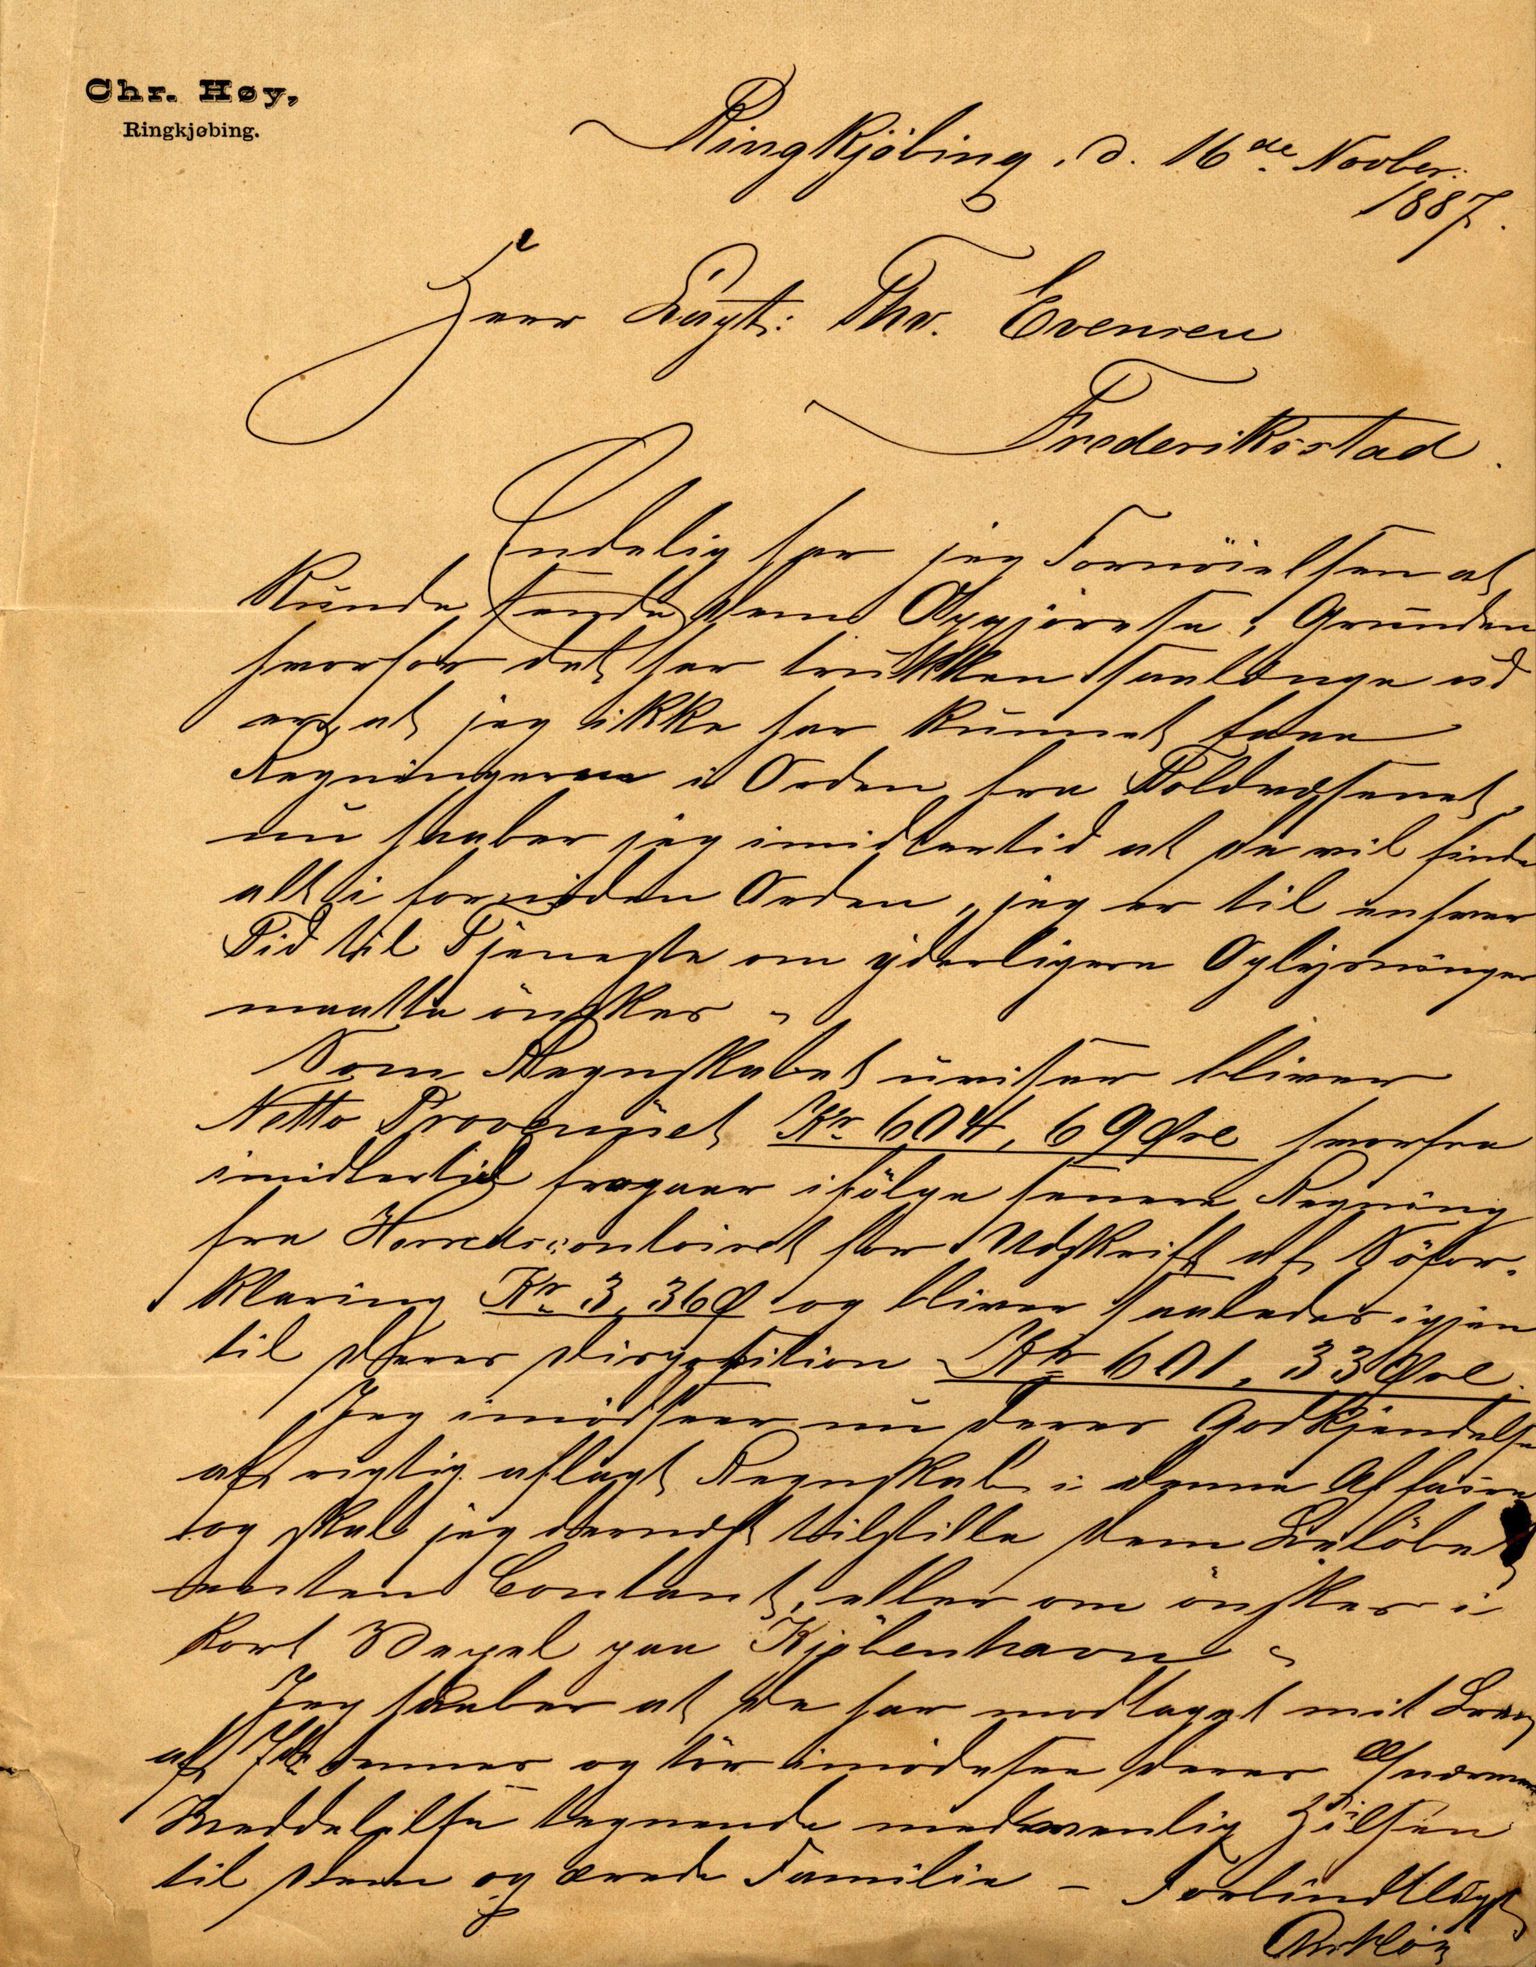 Chr. Høy,
Ringkjøbing.
Ringkjøbing, d. 16de Novber.
1887.
Herr Capt: Thv. Evensen
Frederiksstad.
Endelig har jeg Fornöielsen at
kunde sende Dem Opgjörelse, Grunden
hvorfor det har trukken saalænge ud
er, at jeg ikke har kunnet faae
Regningerne i Orden fra Toldvæsenet,
nu haaber jeg imidlertid at De vil finde
alt i fornöden Orden, jeg er til enhver
Tid til Tjeneste om yderligere Oplysninger
maatte önskes
Som Regnskabet udviser bliver
Netto Provenüet Kr. 604, 69 Øre hvorfra
imidlertid fragaar ifölge senere Regning
fra Herredscontoiret for Udskrift af Söfor-
klaring Kr. 3, 36 Ø og bliver saaledes igjen
til Deres Disposition Kr 601, 33 Øre.
Jeg imödseer nu Deres Godkjendelse
af rigtig aflagt Regnskab i denne Affaire
og skal jeg dernæst tilstille Dem Belöbet
enten Contant, eller om önskes i
kort Vexel paa Kjöbenhavn
Jeg haaber at De har modtaget mit Brev
af 7de dennes og tör imödesee Deres
Meddelelse tegnende med venlig Hilsen
til Dem og ærede Familie – Forbindtligst
Chr Höy